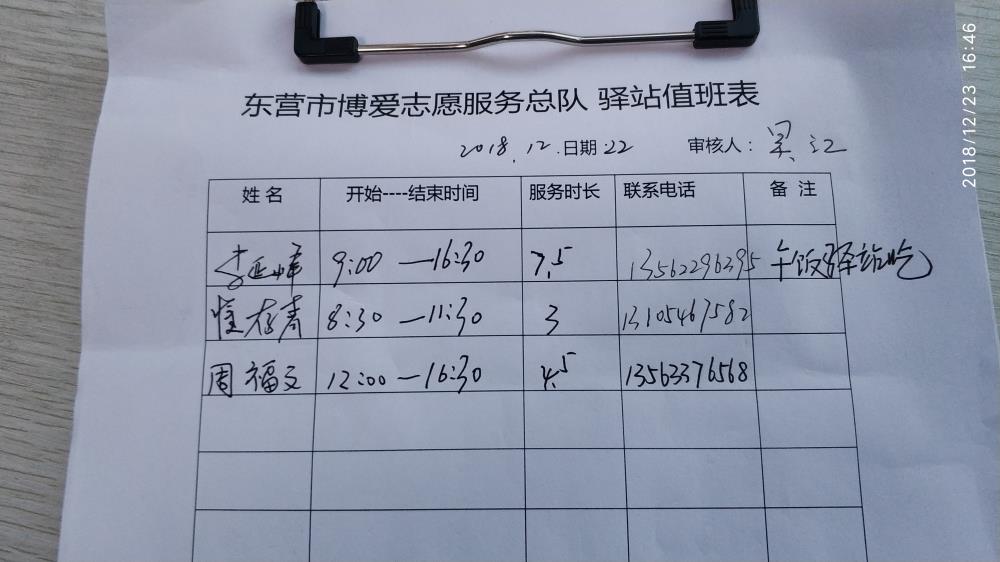 2018/12/23 16:46
东营市博爱志愿服务总队 驿站值班表
2018.12.日期 22 审核人: 吴江
姓名 开始----结束时间 服务时长 联系电话 备 注
李延峰 9:00 —16:30 7.5 13562296395 午饭驿站吃
8:30 —11:30 3 13105467582
周福文 12:00 —16:30 4.5 13563376568